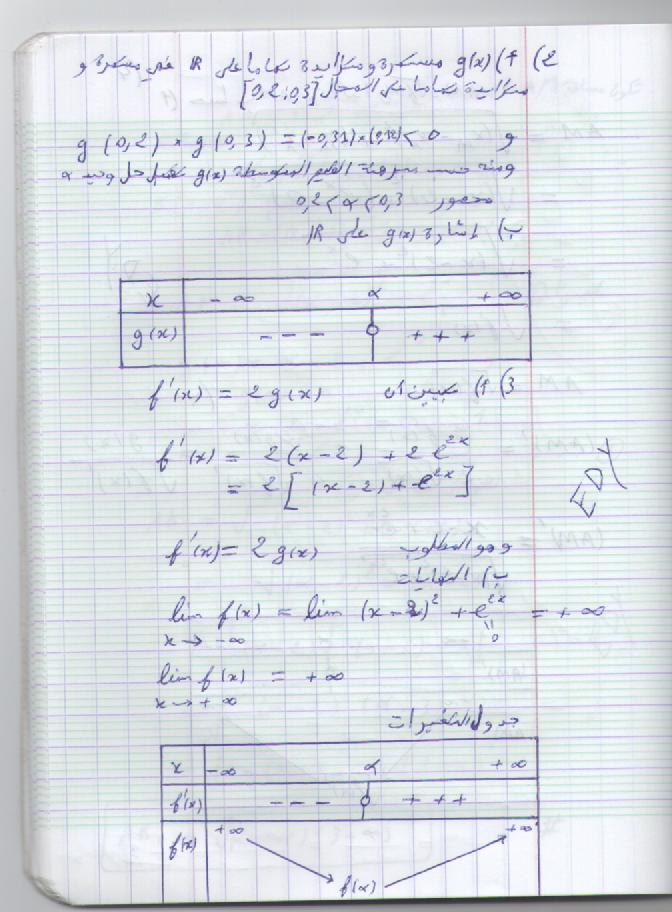 2) أ) g(x) مستمرة ومتزايدة تماما على R فهي مستمرة و
متزايدة تماما على المجال [0,2;0,3]
و g(0,2) × g(0,3) = (-0,31)×(0,12) < 0
ومنه حسب مبرهنة القيم المتوسطة g(x) تقبل حل وحيد α
محصور 0,2 < α < 0,3
ب) إشارة g(x) على R
x -∞ α +∞
g(x) - - - + + +
3) أ) تبيين أن f'(x) = 2g(x)
f'(x) = 2(x-2) + 2e^{2x}
= 2[(x-2)+e^{2x}]
EDY
f'(x) = 2g(x) وهو المطلوب
ب) النهايات
lim f(x) = lim (x-2)² + e^{2x} = +∞
x→ -∞ 0
lim f(x) = +∞
x→ +∞
جدول التغيرات
x -∞ α +∞
f'(x) - - - + + +
f(x) +∞ f(α) +∞